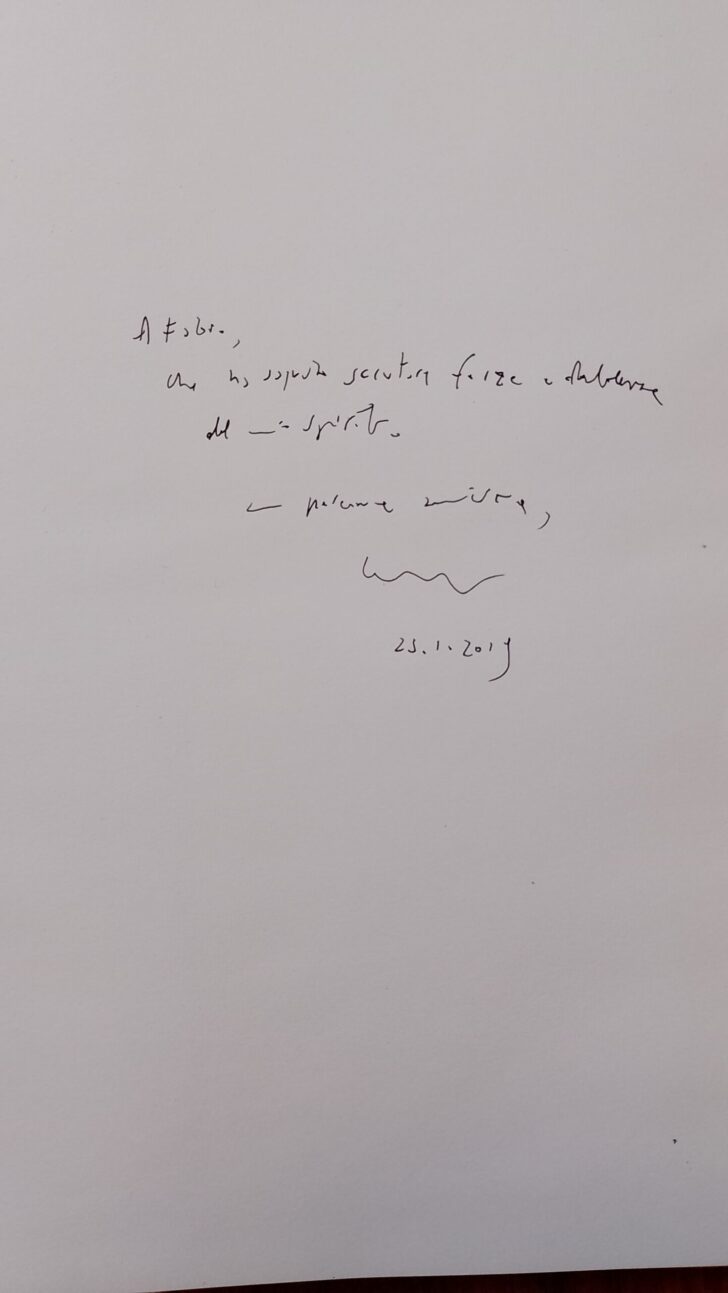 A Fabio,
che ha saputo scrutare forze e debolezze
del mio spirito.
con amicizia,
25.1.2019